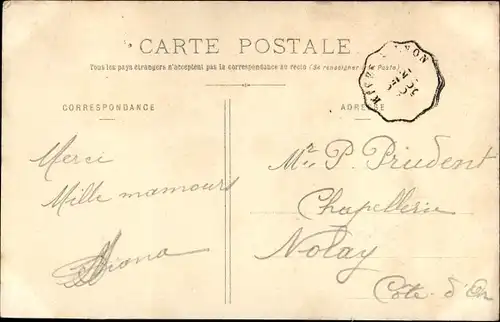 CARTE POSTALE
Tous les pays étrangers n'acceptent pas la correspondance au recto (Se renseigner à la Poste)
CORRESPONDANCE
ADRESSE
Merci
Mille mamours
Mr P. Prudent
Chapellerie
Nolay
Côte-d'Or